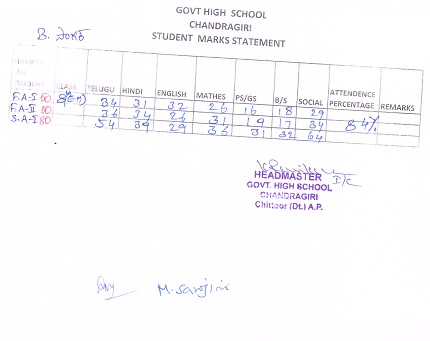 GOVT HIGH SCHOOL
CHANDRAGIRI
STUDENT MARKS STATEMENT
CLASS TELUGU HINDI ENGLISH MATHES PS/GS B/S SOCIAL ATTENDENCE PERCENTAGE REMARKS
F.A-I 50 34 31 32 26 16 18 29
F.A-II 50 36 34 26 31 19 17 34 84%
S.A-I 80 54 39 29 36 31 32 64
HEADMASTER I/C
GOVT. HIGH SCHOOL
CHANDRAGIRI
Chittoor (Dt.) A.P.
M. Sarojini